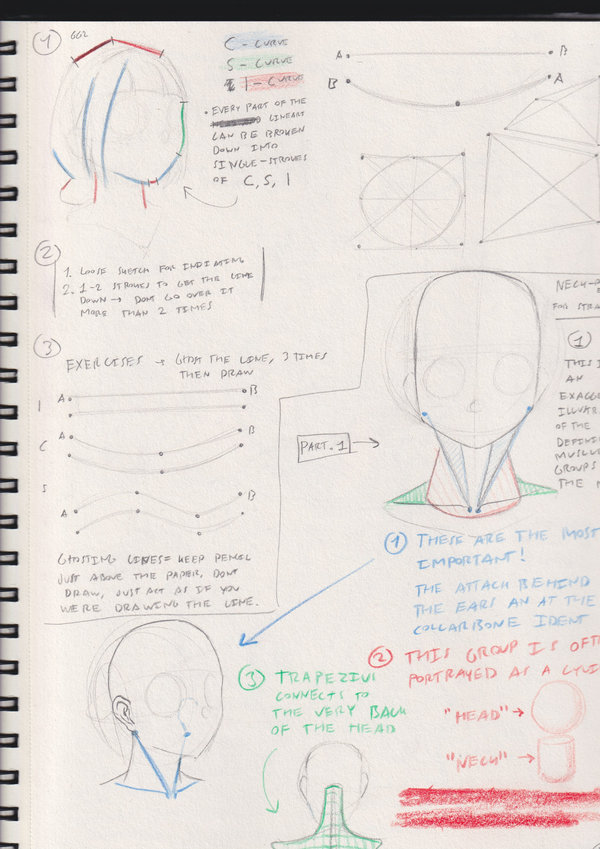 1
C - CURVE
S - CURVE
I - CURVE
• EVERY PART OF THE
LINEART
CAN BE BROKEN
DOWN INTO
SINGLE-STROKES
OF C, S, I
A B
B A
2
1. LOOSE SKETCH FOR INDICATING
2. 1-2 STROKES TO GET THE LINE
DOWN → DONT GO OVER IT
MORE THAN 2 TIMES
3
EXERCISES → GHOST THE LINE, 3 TIMES
THEN DRAW
I A B
C A B
S A B
GHOSTING LINES= KEEP PENCIL
JUST ABOVE THE PAPER, DONT
DRAW, JUST ACT AS IF YOU
WERE DRAWING THE LINE.
NECK-
FOR STRA
1
THIS I
AN
EXAGG
ILLUSTR
OF THE
DEFINI
MUSCL
GROUPS
THE
PART.1 →
1 THESE ARE THE MOST
IMPORTANT!
THE ATTACH BEHIND
THE EARS AN AT THE
COLLARBONE IDENT
2 THIS GROUP IS OFTE
PORTRAYED AS A CYLI
"HEAD" →
"NECK" →
3 TRAPEZIUS
CONNECTS TO
THE VERY BACK
OF THE HEAD